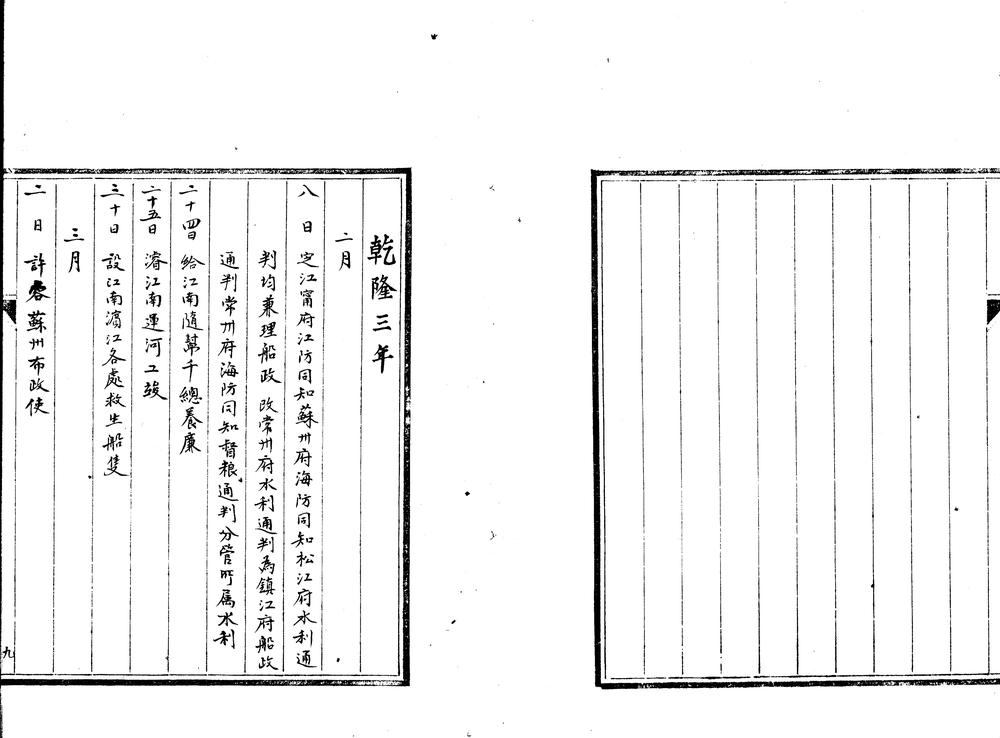 乾隆三年
二月
八日 定江甯府江防同知蘇州府海防同知松江府水利通
判均兼理船政 改常州府水利通判為鎮江府船政
通判常州府海防同知督粮通判分管所属水利
二十四日 給江南隨幫千總養廉
二十五日 濬江南運河工竣
三十日 設江南濵江各處救生船隻
三月
二日 許容蘇州布政使
九